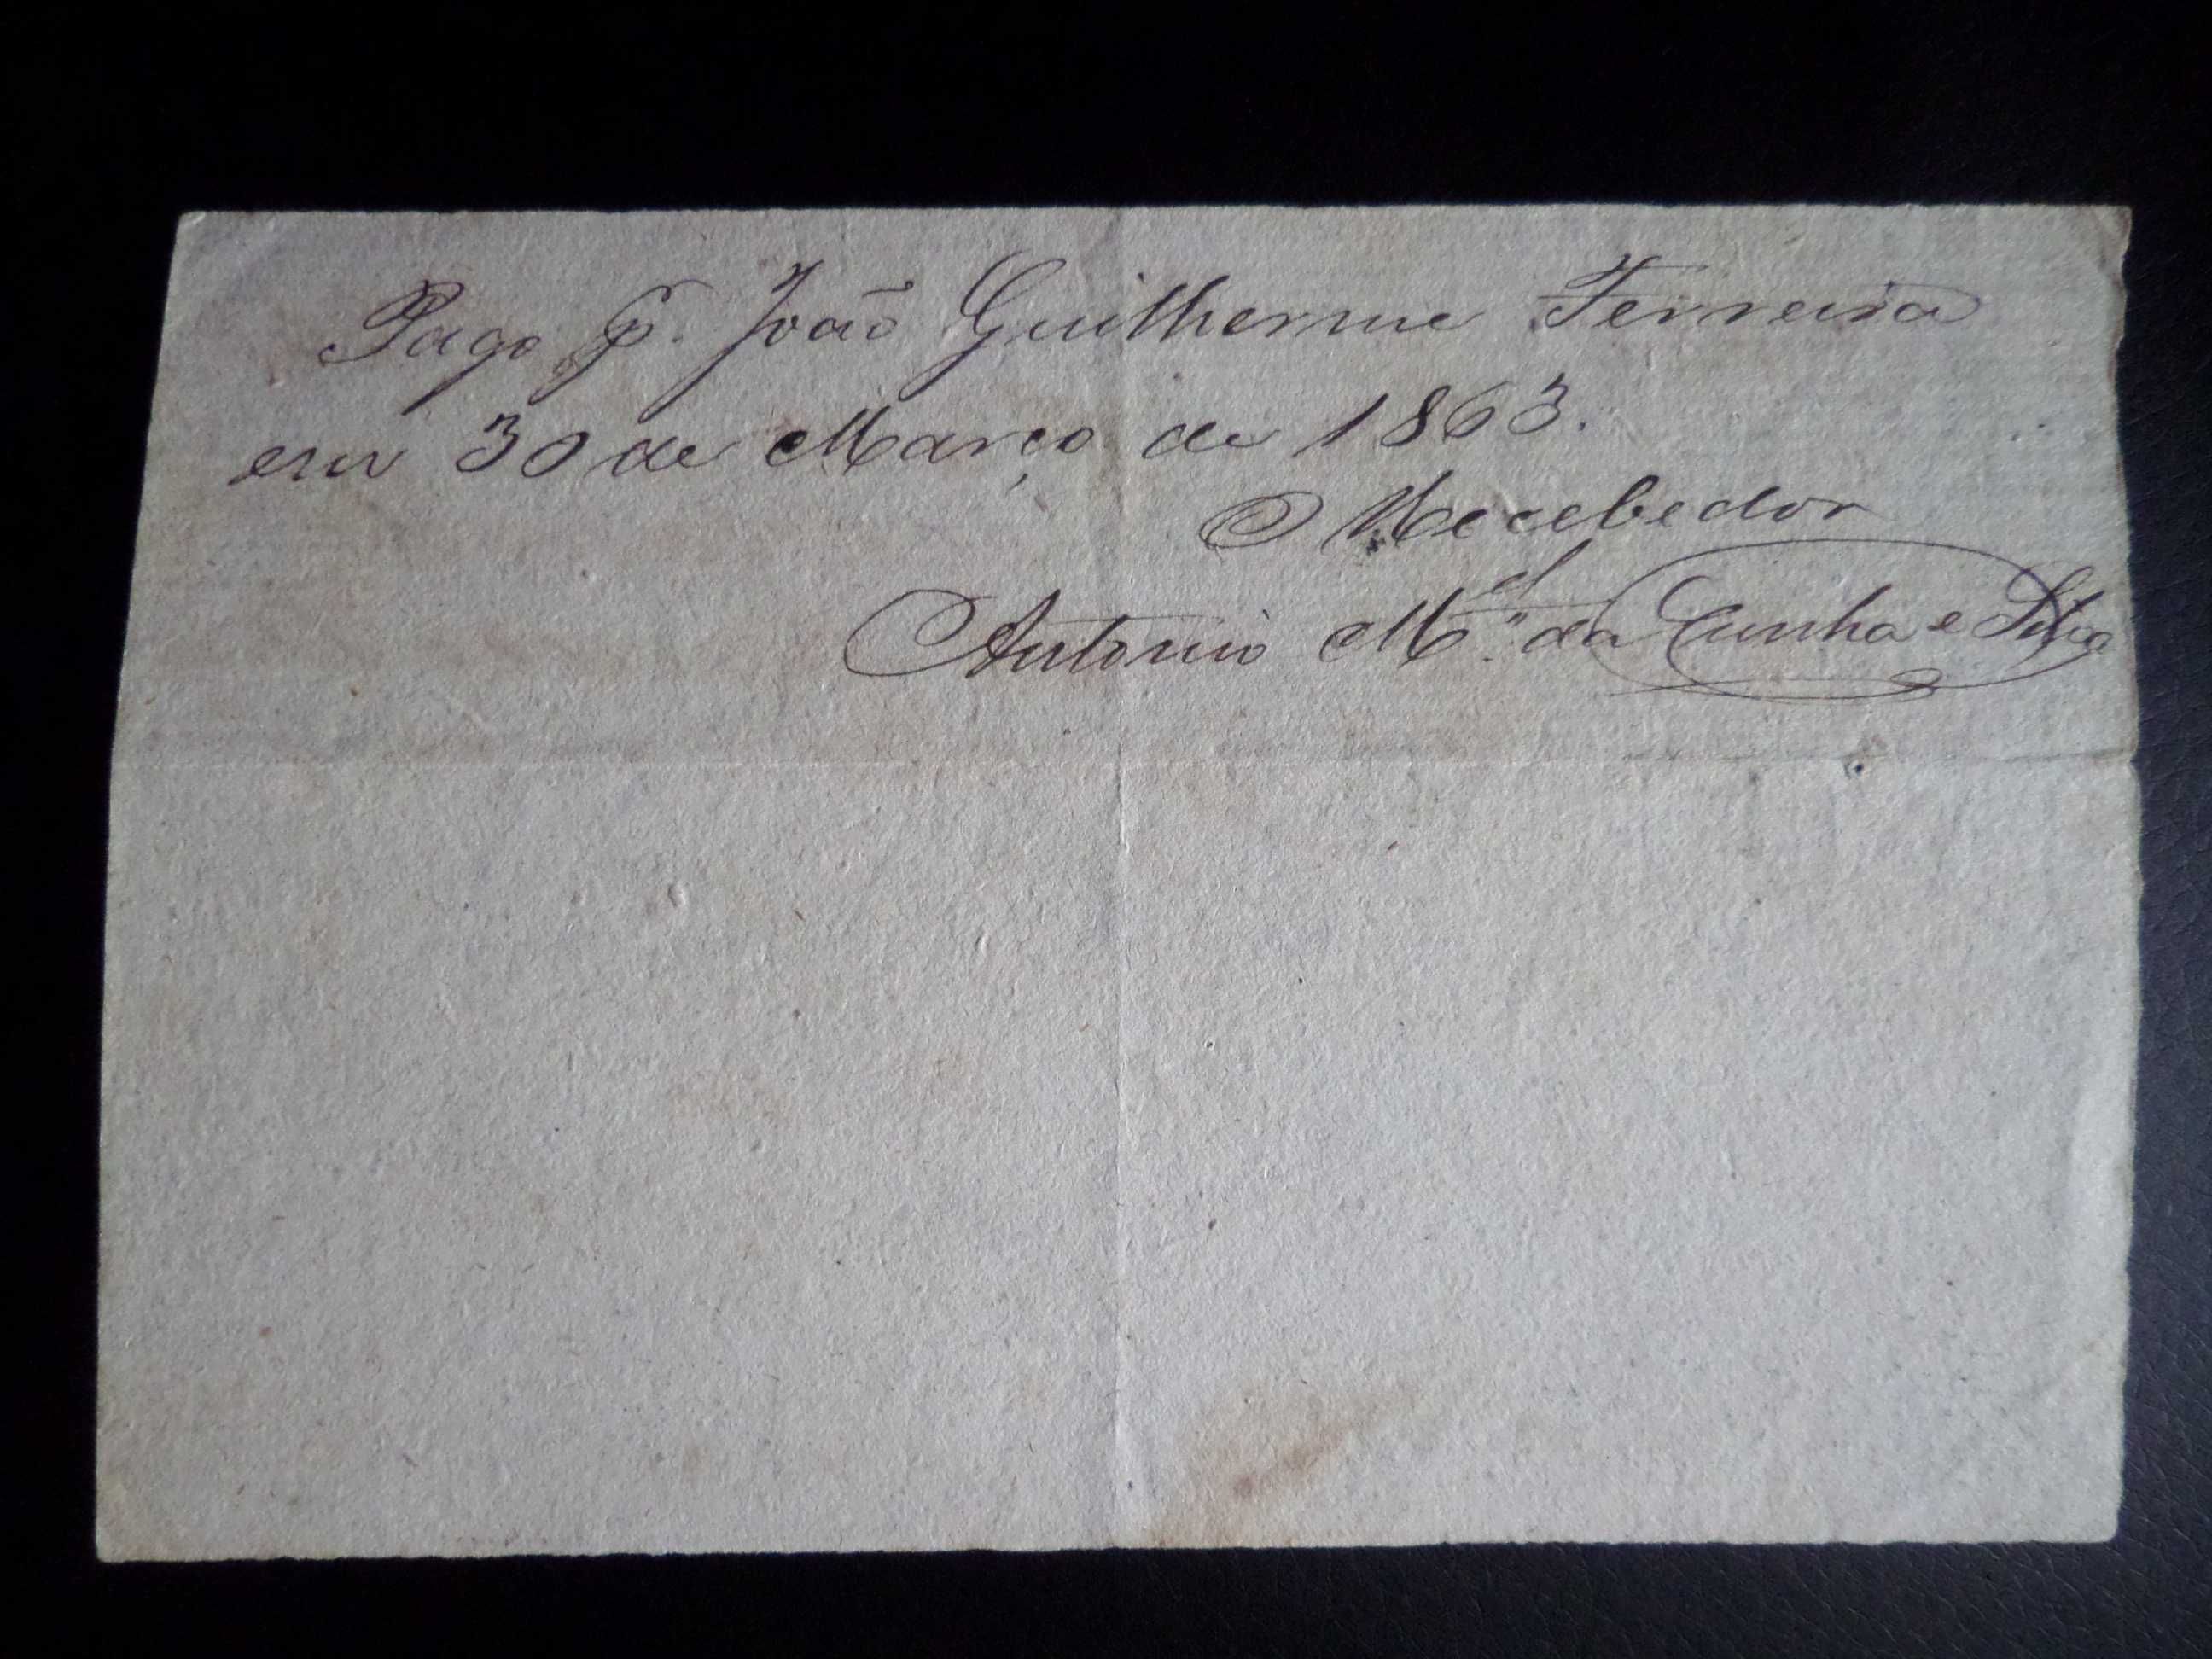 Pago p. João Guilherme Ferreira
em 30 de Março de 1863.
O Recebedor
Antonio M.el da Cunha e Silva